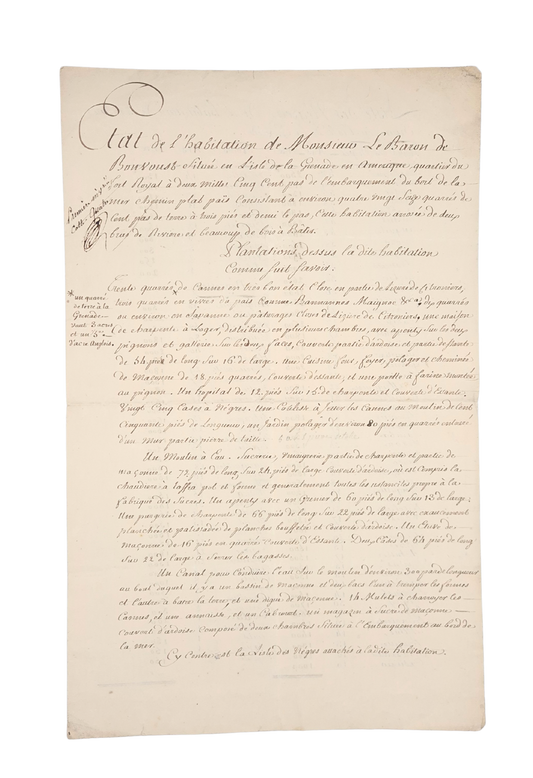 Etat de l'habitation de Monsieur Le Baron de
Bonvoust située en L'isle de la Grenade en Amerique quartier du
fort Royal à deux milles Cinq Cent pas de l'embarquement du bort de la
mer chemin plat païs Consistant a environ quatre vingt Seize quarés de
Cent pas de terre à trois piés et demi le pas, Cette habitation arosée de deux
bras de Riviere et beaucoup de bois à Batir.
Plantations dessus la dite habitation
Comme suit savoir.
Trente quarés de Cannes en tres bon état Clos en partie de Lizure de Citroniers,
trois quarés en vivres du païs Comme Bannannes Magnoc &ca; quarés
ou environ en Savanne ou pâturages Clous de Lizure de Citroniers, une maison
de charpente à Loger, distribuée en plusieurs chambres, avec apentis sur les deux
pignons et galleries sur les deux faces, Couverte partie d'ardoise et partie d'essente
de 54 piés de long sur 16 de large. Une Cuisine four, foyer, potager et cheminée
de Maçonne de 18 piés quarés, Couverte d'essente, et une poelle à farine montée
au pignon. Un hopital de 12 piés sur 15 de charpente et Couverte d'Essente.
Vingt Cinq Cases à Nègres. Une Coulisse à Jetter les Cannes au Moulin de Cent
Cinquante piés de Longueur, un Jardin potager d'environ 80 piés en quarés entouré
d'un Mur partie pierre de taille.
Un Moulin à Eau. Sucrerie, vinaigrerie partie de charpente et partie de
maçonne de 72 piés de long sur 24 piés de large Couverte d'ardoise, où est Compris la
chaudiere à taffia pots et formes et generalement toutes les ustanciles propre à la
fabrique des Sucres. Un apentis avec un Grenier de 60 piés de long sur 13 de large,
Une purgerie de charpente de 66 piés de long sur 22 piés de large avec
planchée et palissadée de planches bouffetées et Couverte d'ardoise. Un Etuve de
maçonne de 16 piés en quarés Couverte d'Essente. Deux Cases de 64 piés de long
sur 22 de large à Serrer les bagasses.
Un Canal pour Conduire l'eau sur le moulin d'environ 300 pas de longueur
au bout duquel il y a un bassin de maçonne et deux bacs L'un à tremper les formes
et l'autre à batre la terre, et une digue de Maçonne. 14 Mulets à charroyer les
Cannes, et une annuiste, et un Cabrouet. un magazin à sucre de maçonne
Couvert d'ardoise composé de deux chambres Situé à l'Embarquement au bord de
la mer.
Cy Contre est la Liste des Nègres attachés à la dite habitation.
Premier
Cotté
* un quarré
de terre à la
Grenade
vaut 3 acres
et un 5e
d'acre Anglois.